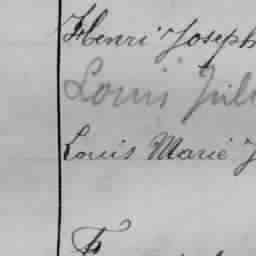 Henri Joseph
Louis
Louis Marie